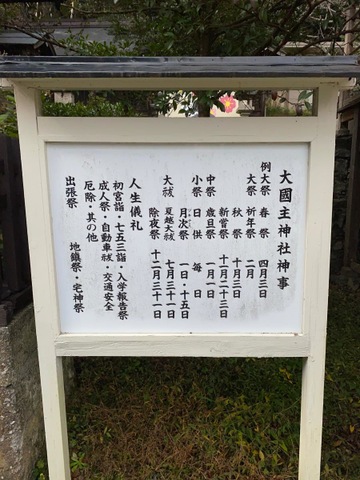 大國主神社神事
例大祭 春祭 四月三日
大祭 祈年祭 二月
秋祭 十月三日
新嘗祭 十一月二十三日
中祭 歳旦祭 一月一日
小祭 日供 毎日
月次祭 一日・十五日
大祓 夏越大祓 七月三十一日
除夜祭 十二月三十一日
人生儀礼
初宮詣・七五三詣・入学報告祭
成人祭・自動車祓・交通安全
厄除・其の他
出張祭 地鎮祭・宅神祭